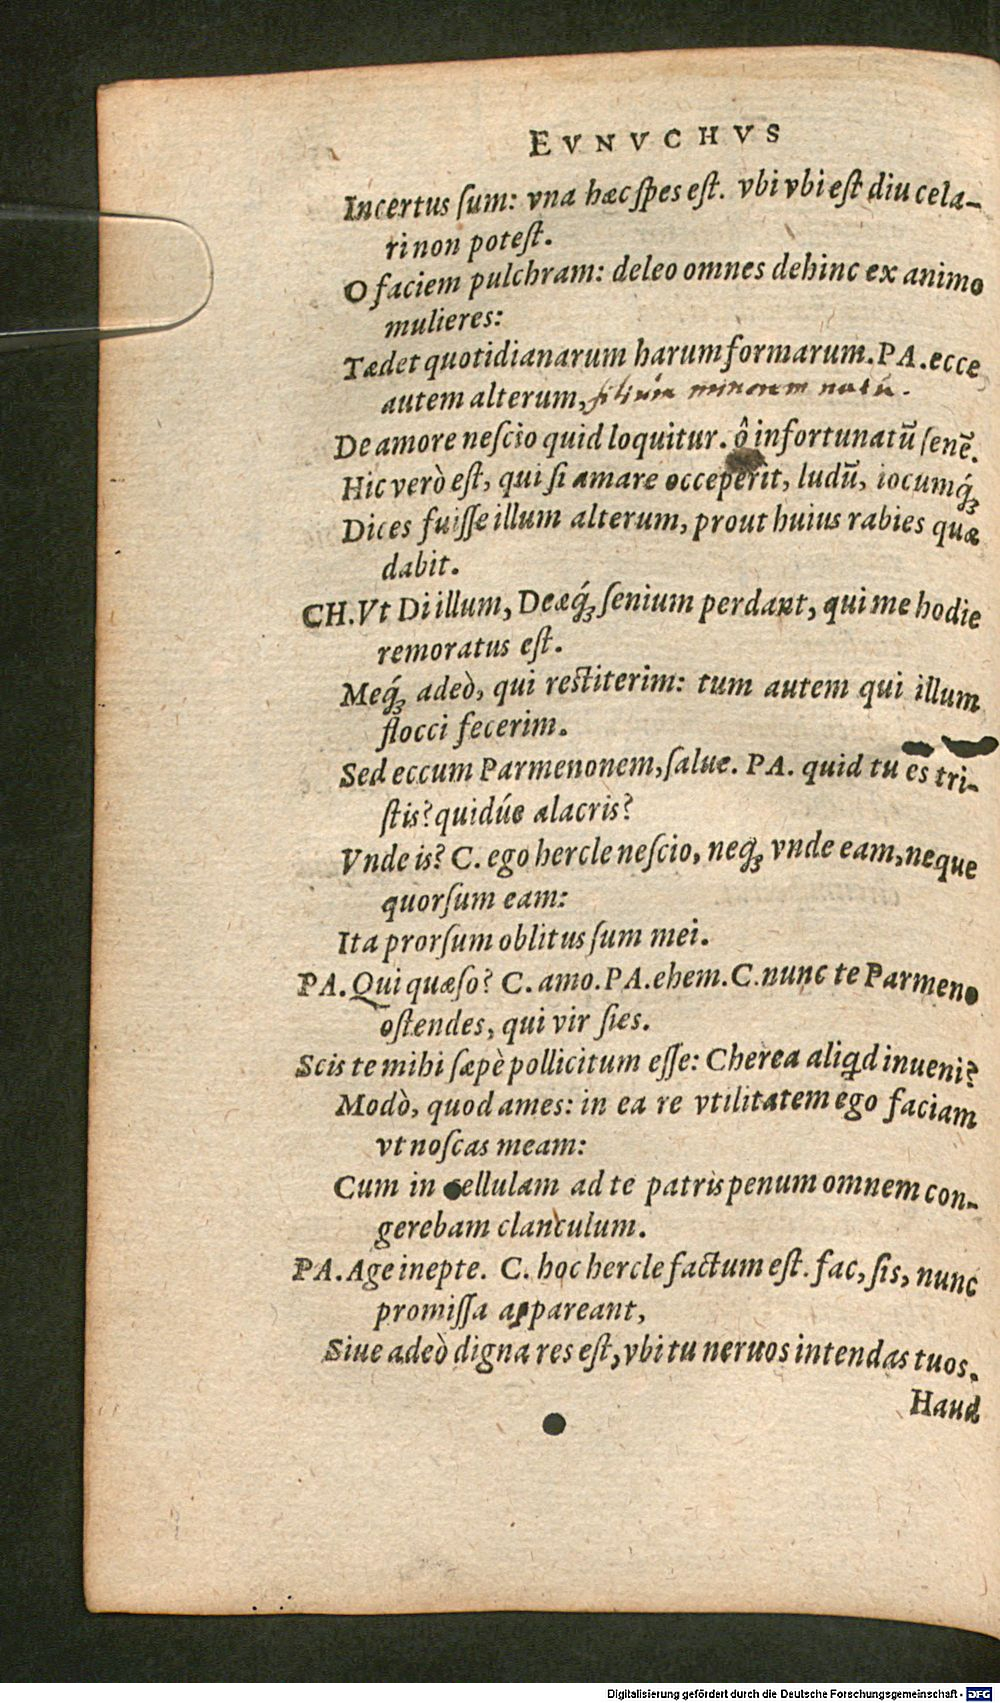 EVNVCHVS
Incertus ſum: vna hæc ſpes eſt. vbi vbi eſt diu cela-
ri non poteſt.
O faciem pulchram: deleo omnes dehinc ex animo
mulieres:
Tædet quotidianarum harum formarum. PA. ecce
autem alterum, filiũm minorem natũ.
De amore neſcio quid loquitur. ô infortunatũ ſenẽ.
Hic verò eſt, qui ſi amare occeperit, ludũ, iocumq́ꝫ
Dices fuiſſe illum alterum, prout huius rabies quæ
dabit.
CH. Vt Di illum, Deæq́ꝫ ſenium perdant, qui me hodie
remoratus eſt.
Meq́ꝫ adeò, qui reſtiterim: tum autem qui illum
flocci fecerim.
Sed eccum Parmenonem, ſalue. PA. quid tu es tri-
ſtis? quidúe alacris?
Vnde is? C. ego hercle neſcio, neq́ꝫ vnde eam, neque
quorſum eam:
Ita prorſum oblitus ſum mei.
PA. Qui quæſo? C. amo. PA. ehem. C. nunc te Parmeno
oſtendes, qui vir ſies.
Scis te mihi ſæpè pollicitum eſſe: Cherea aliꝗd inueni?
Modò, quod ames: in ea re vtilitatem ego faciam
vt noſcas meam:
Cum in cellulam ad te patris penum omnem con-
gerebam clanculum.
PA. Age inepte. C. hoc hercle factum eſt. fac, ſis, nunc
promiſſa appareant,
Siue adeò digna res eſt, vbi tu neruos intendas tuos.
Haud
Digitalisierung gefördert durch die Deutsche Forschungsgemeinschaft - DFG